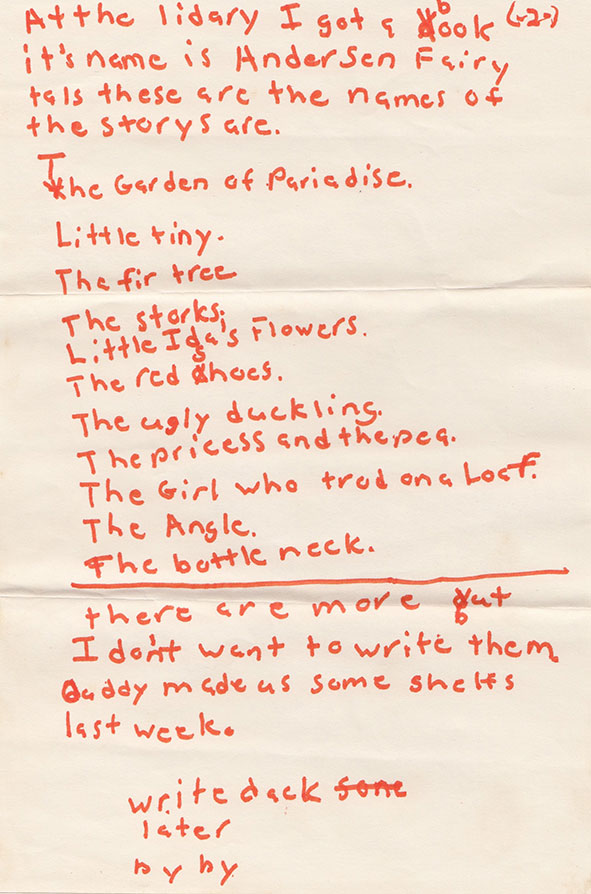 At the lidary I got a book (-2-)
it's name is Andersen Fairy
tals these are the names of
the storys are.
The Garden of Pariadise.
Little tiny.
The fir tree
The storks.
Little Ida's Flowers.
The red shoes.
The ugly duckling.
The pricess and the pea.
The Girl who trod on a Loaf.
The Angle.
The bottle neck.
there are more but
I don't want to write them
Daddy made us some shelfs
last week.
write dack sone
later
by by